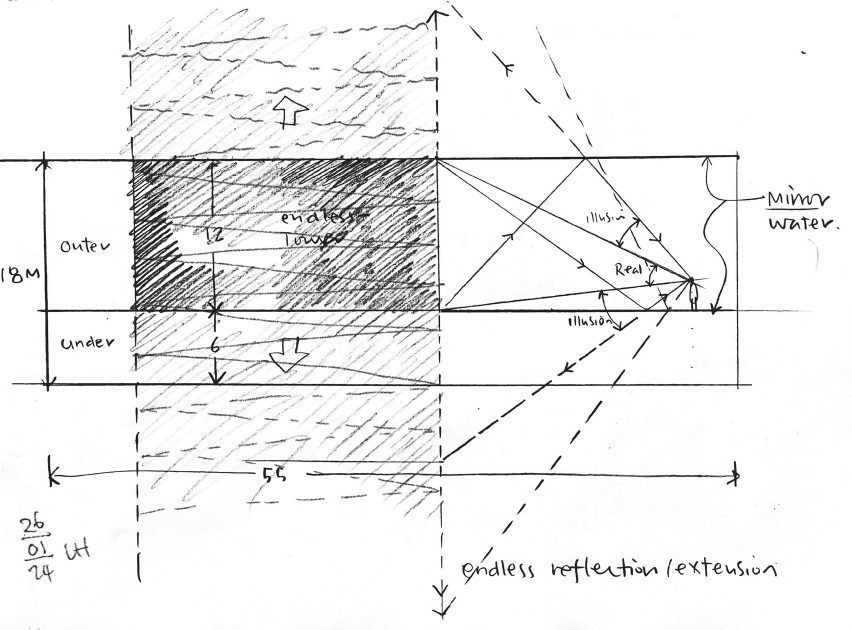 endless
Tower
12
outer
18M
under
6
illusion
Real
illusion
Mirror
water.
55
26
01
24
LH
endless reflection/extension